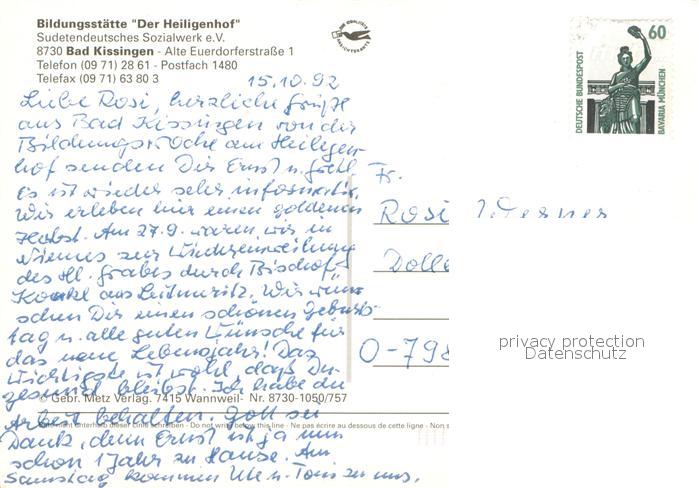 Bildungsstätte "Der Heiligenhof"
Sudetendeutsches Sozialwerk e.V.
8730 Bad Kissingen - Alte Euerdorferstraße 1
Telefon (09 71) 28 61 - Postfach 1480
Telefax (09 71) 63 80 3
60
DEUTSCHE BUNDESPOST
BAVARIA MÜNCHEN
15.10.92
Liebe Rosi, herzliche Grüße
aus Bad Kissingen von der
Bildungswoche am Heiligen-
hof senden Dir Ernst u. Gretl
Es ist wieder sehr informativ.
Wir erleben hier einen goldenen
Herbst. Am 27.9. waren wir in
zur Wiedereinweihung
des Hl. Grabes durch Bischof
aus Leitmeritz. Wir wün-
schen Dir einen schönen Geburts-
tag u. alle guten Wünsche für
das neue Lebensjahr! Das
Wichtigste ist wohl, daß Du
gesund bleibst. Ich habe die
Arbeit behalten. Gott sei
Dank, denn Ernst ist ja nun
schon 1 Jahr zu Hause. Am
Samstag kommen Ute u. Toni zu uns.
Fr.
Rosi Werner
O-798
privacy protection
Datenschutz
© Gebr. Metz Verlag. 7415 Wannweil- Nr. 8730-1050/757
unterhalb dieser Linie schreiben - Do not write below this line - Ne pas écrire au dessous de cette ligne - Non s